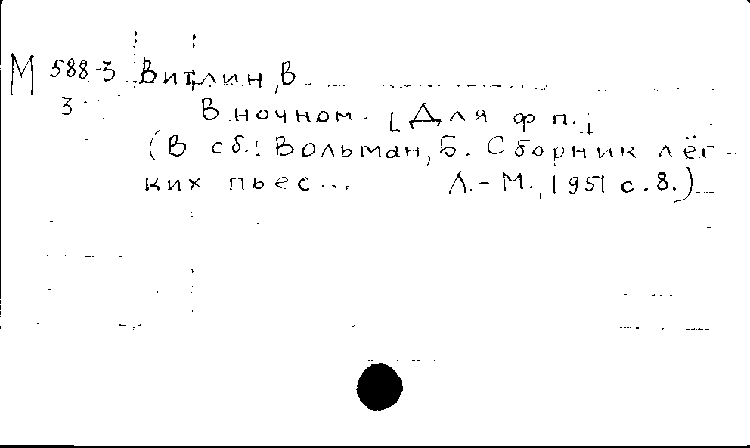 М 588-3 Витлин, В
3 В ночном. [Для ф п.]
(В сб.: Вольман, Б. Сборник лёг-
ких пьес... Л.-М., 1951 с. 8.)